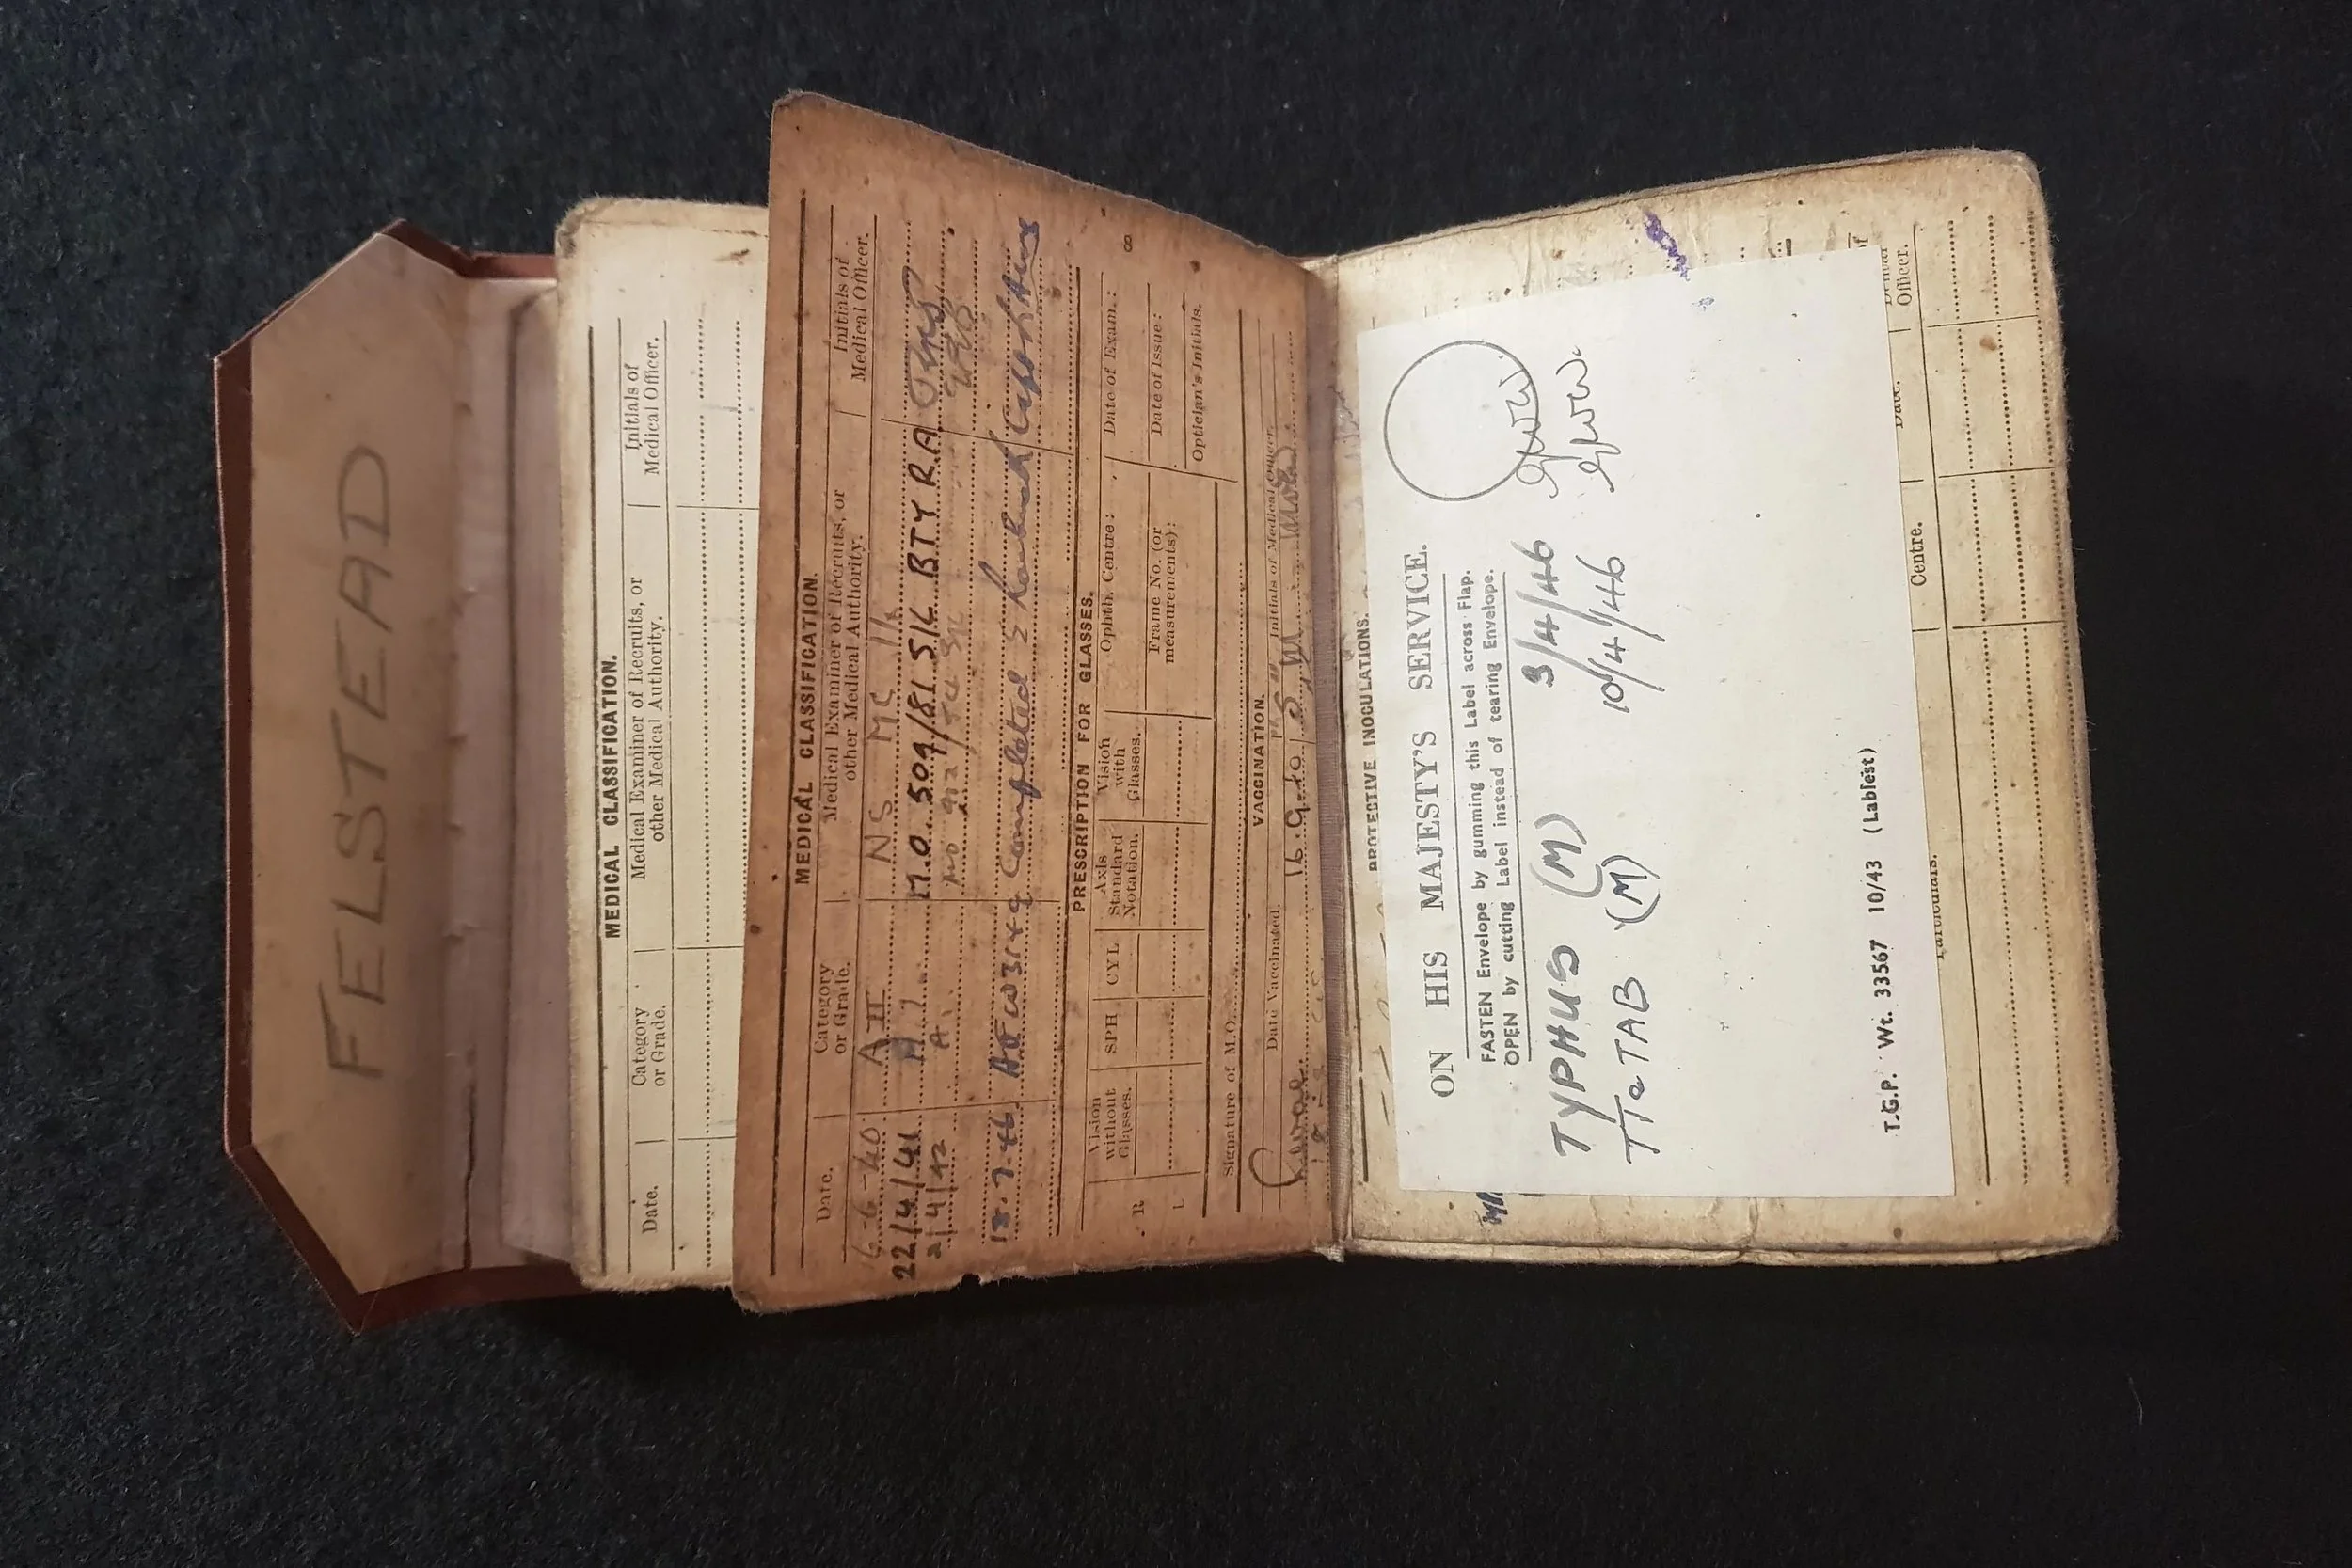 FELSTEAD
MEDICAL CLASSIFICATION.
Date.
Category or Grade.
Medical Examiner of Recruits, or other Medical Authority.
Initials of Medical Officer.
MEDICAL CLASSIFICATION.
Date.
Category or Grade.
Medical Examiner of Recruits, or other Medical Authority.
Initials of Medical Officer.
6-6-40 A II NS MC
22/4/41 A 1. M.O. 509/81 S/L BTY R.A
2/4/42 A1. MO
18.7.46. AFW3149 Completed
PRESCRIPTION FOR GLASSES.
Vision without Glasses.
SPH
CYL
Axis Standard Notation.
Vision with Glasses.
Ophth. Centre:
Date of Exam.:
R
L
Frame No. (or measurements):
Date of Issue:
Optician's Initials.
VACCINATION.
Signature of M.O.
Date Vaccinated.
Initials of Medical Officer.
16.9.40
8
PROTECTIVE INOCULATIONS.
ON HIS MAJESTY'S SERVICE.
FASTEN Envelope by gumming this Label across Flap.
OPEN by cutting Label instead of tearing Envelope.
TYPHUS (M) 3/4/46
TTaTAB (M) 10/4/46
T.G.P. Wt. 33567 10/43 (Lablest)
Particulars.
Centre.
Date.
Officer.